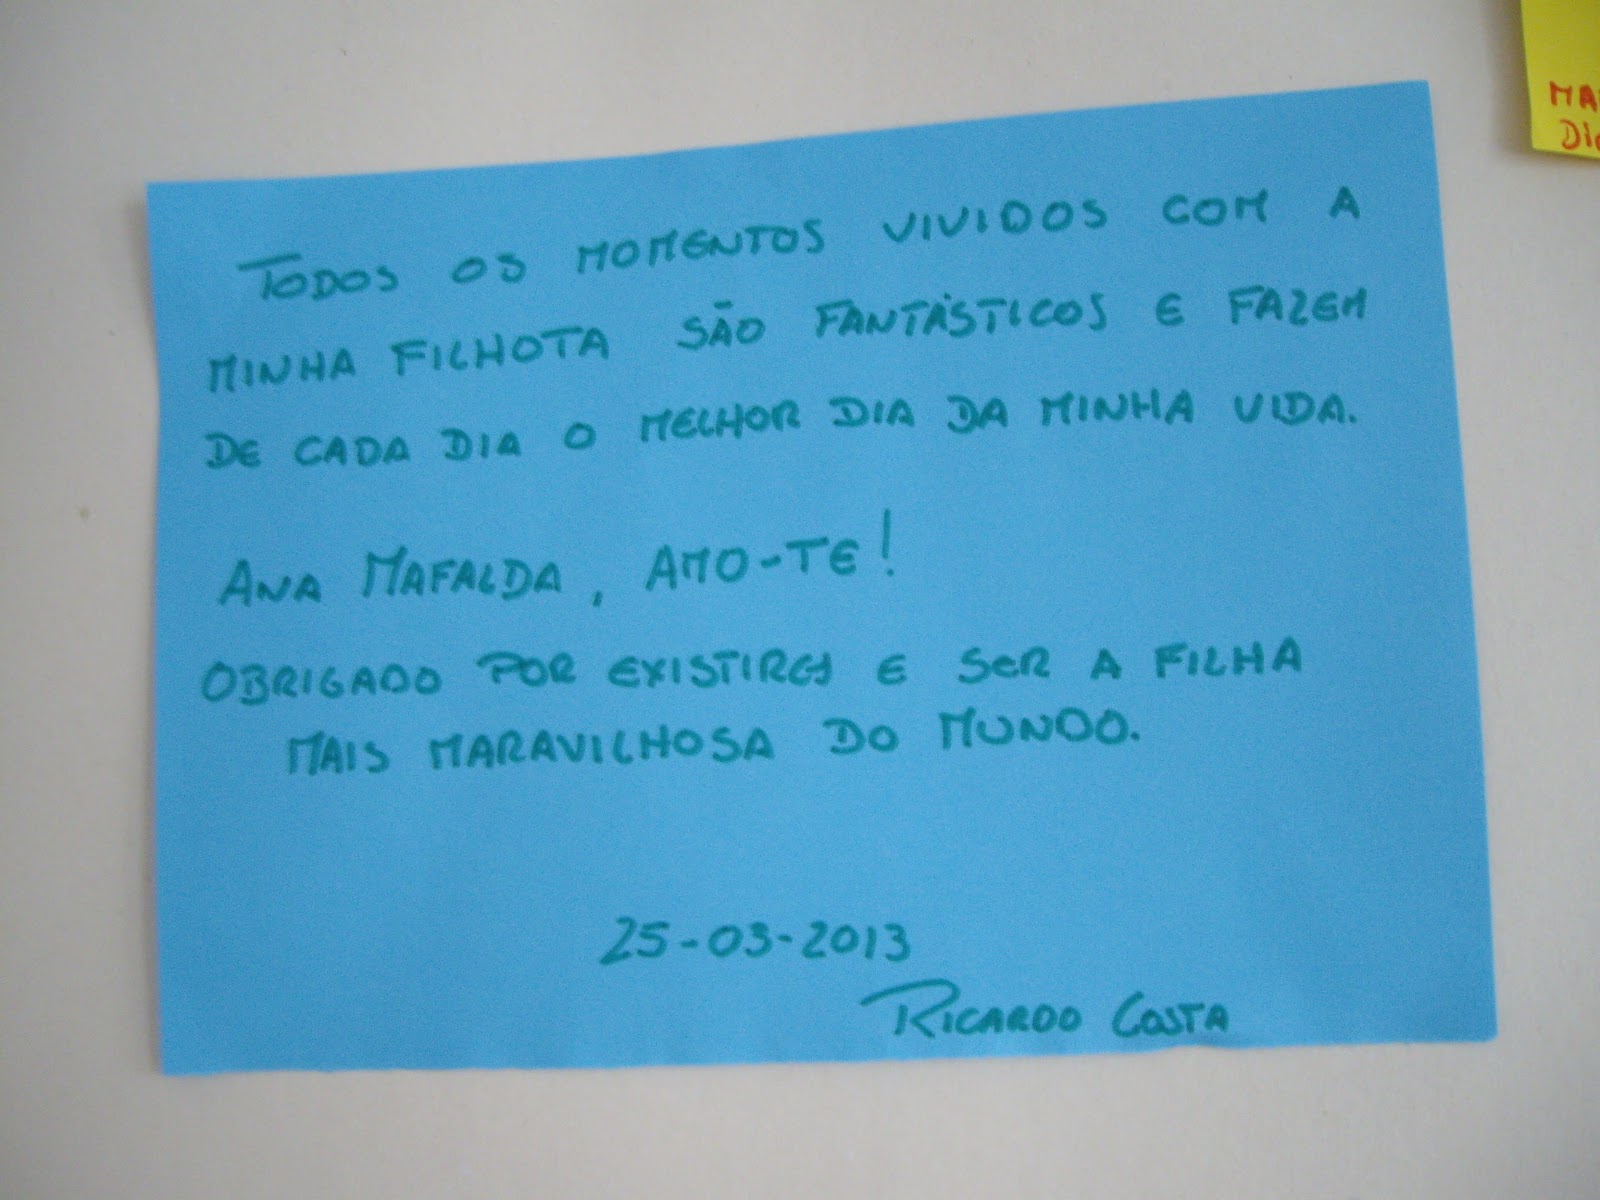 TODOS OS MOMENTOS VIVIDOS COM A
MINHA FILHOTA SÃO FANTÁSTICOS E FAZEM
DE CADA DIA O MELHOR DIA DA MINHA VIDA.
ANA MAFALDA, AMO-TE!
OBRIGADO POR EXISTIRES E SER A FILHA
MAIS MARAVILHOSA DO MUNDO.
25-03-2013
RICARDO COSTA